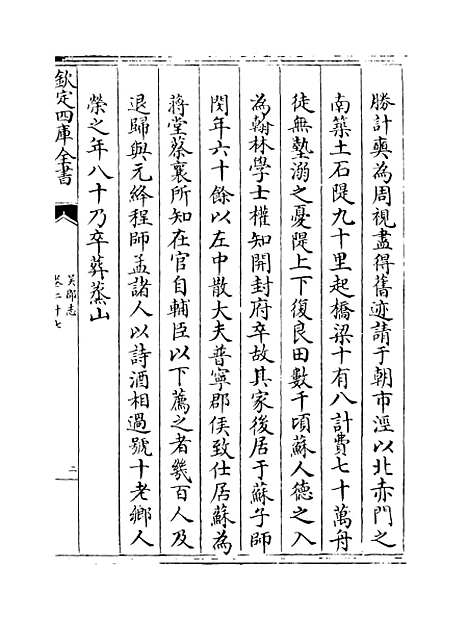 勝計奭為周視盡得舊迹請于朝市涇以北赤門之
南築土石隄九十里起橋梁十有八計費七十萬舟
徒無墊溺之憂隄上下復良田數千頃蘇人德之入
為翰林學士權知開封府卒故其家後居于蘇子師
閔年六十餘以左中散大夫普寧郡侯致仕居蘇為
蔣堂蔡襄所知在官自輔臣以下薦之者幾百人及
退歸與元絳程師孟諸人以詩酒相過號十老鄉人
榮之年八十乃卒葬蒸山
欽定四庫全書
吳郡志
卷二十七
二